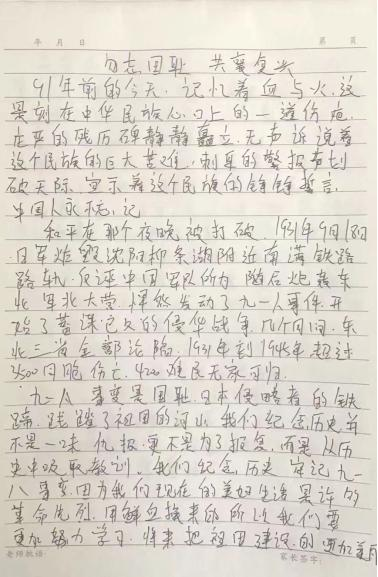 年 月 日 第 页
勿忘国耻 共襄复兴
91年前的今天,记忆着血与火,这
是刻在中华民族心口上的一道伤疤,
庄严的残历碑静静矗立,无声诉说着
这个民族的巨大苦难,刺耳的警报声划
破天际,宣示着这个民族的铮铮誓言,
中国人永志记
和平在那个夜晚被打破,1931年9月18日
日军炸毁沈阳柳条湖附近南满铁路
路轨,反诬中国军队所为,随后炮轰东
北军北大营,悍然发动了九一八事件,开
始了蓄谋已久的侵华战争,几个月间,东
北三省全部沦陷,1931年到1945年超过
3500同胞伤亡,4200难民无家可归.
九一八事变是国耻,日本侵略者的铁
蹄,践踏了祖国的河山,我们纪念历史并
不是一味仇报,更不是为了报复,而是从历
史中吸取教训,我们纪念历史,牢记九一
八事变,因为我们现在的美好生活是许多
革命先烈,用鲜血换来的,所以我们要
更加努力学习,将来把祖国建设的更加美好
老师教语: 家长签字: